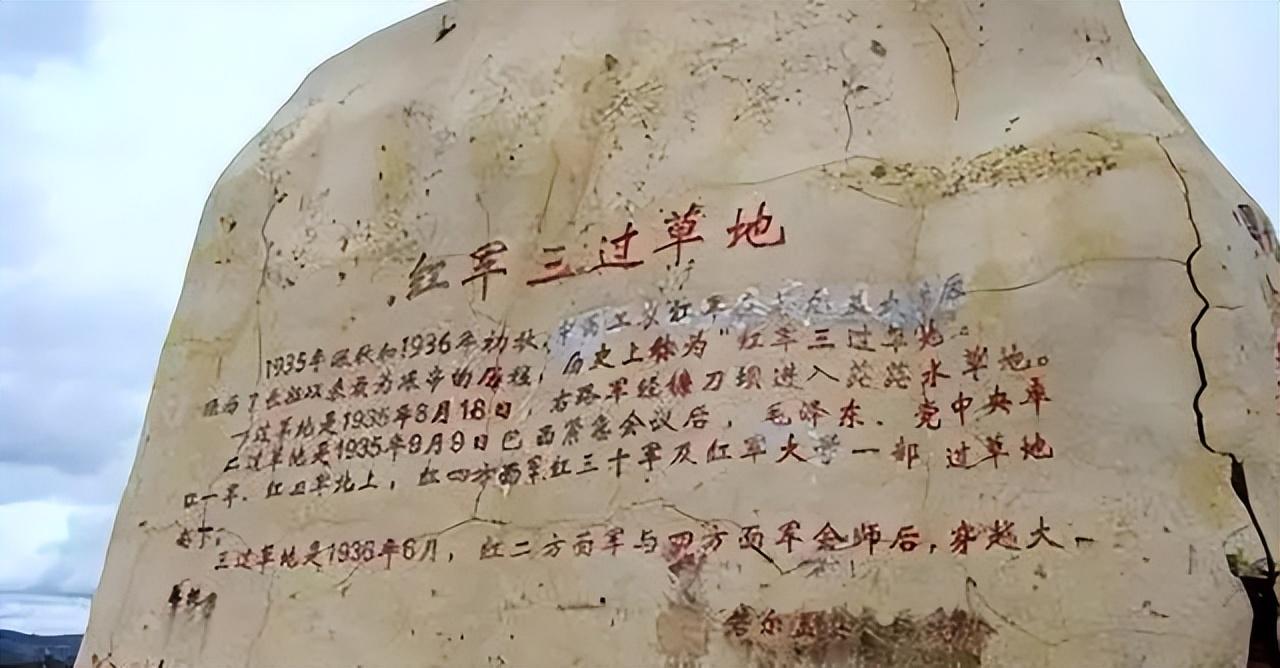 红军三过草地
1935年深秋和1936年初秋,中国工农红军在若尔盖大草原
了长征以来最为艰辛的历程,历史上称为“红军三过草地”
一过草地是1935年8月18日,右路军经镰刀坝进入茫茫水草地。
二过草地是1935年9月9日巴西紧急会议后,毛泽东、党中央率
红一军、红三军北上,红四方面军红三十军及红军大学一部过草地
南下。
三过草地是1936年6月,红二方面军与四方面军会师后,穿越大
草地
若尔盖